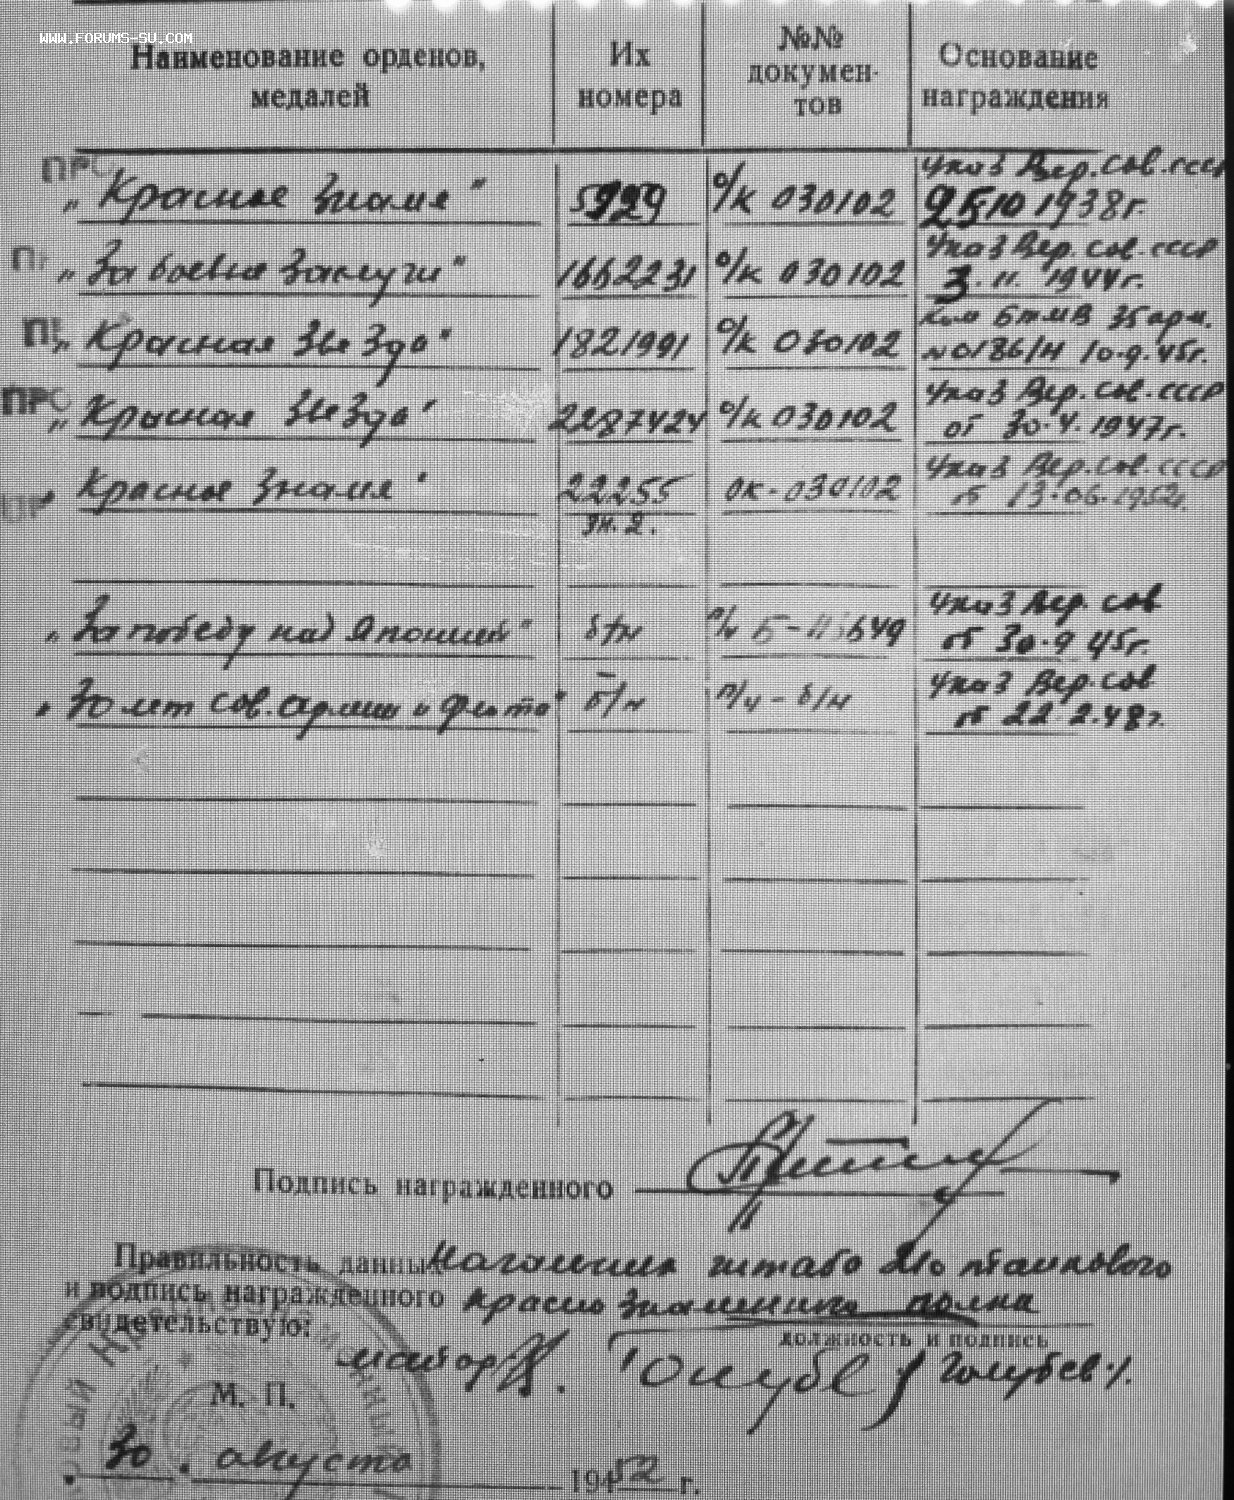 WWW.FORUMS-SU.COM
Наименование орденов, медалей
Их номера
№№ документов
Основание награждения
ПРО
„Красное Знамя" 5929 о/к 030102 Указ Вер. Сов. СССР 25 10 1938г.
„За боевые заслуги" 1662231 о/к 030102 Указ Вер. Сов. СССР 3. 11. 1944г.
„Красная Звезда" 1821991 о/к 030102 БТ и МВ 35 арм. № 0186/н 10.9.45г.
ПРО
„Красная Звезда" 2287424 о/к 030102 Указ Вер. Сов. СССР от 30.4.1947г.
„Красное Знамя" 22255 ок-030102 Указ Вер. Сов. СССР от 13.06.1952г.
зн. 2.
„За победу над Японией" б/н Указ Вер. Сов от 30.9 45г.
„30 лет Сов. Армии и Флота" б/н п/у - б/н Указ Вер. Сов от 22 2.48г.
Подпись награжденного
Правильность данных Начальник штаба танкового
и подпись награжденного Краснознаменного полка
свидетельствую:
должность и подпись
майор Голубев /Голубев/.
М. П.
„30" августа 1952 г.